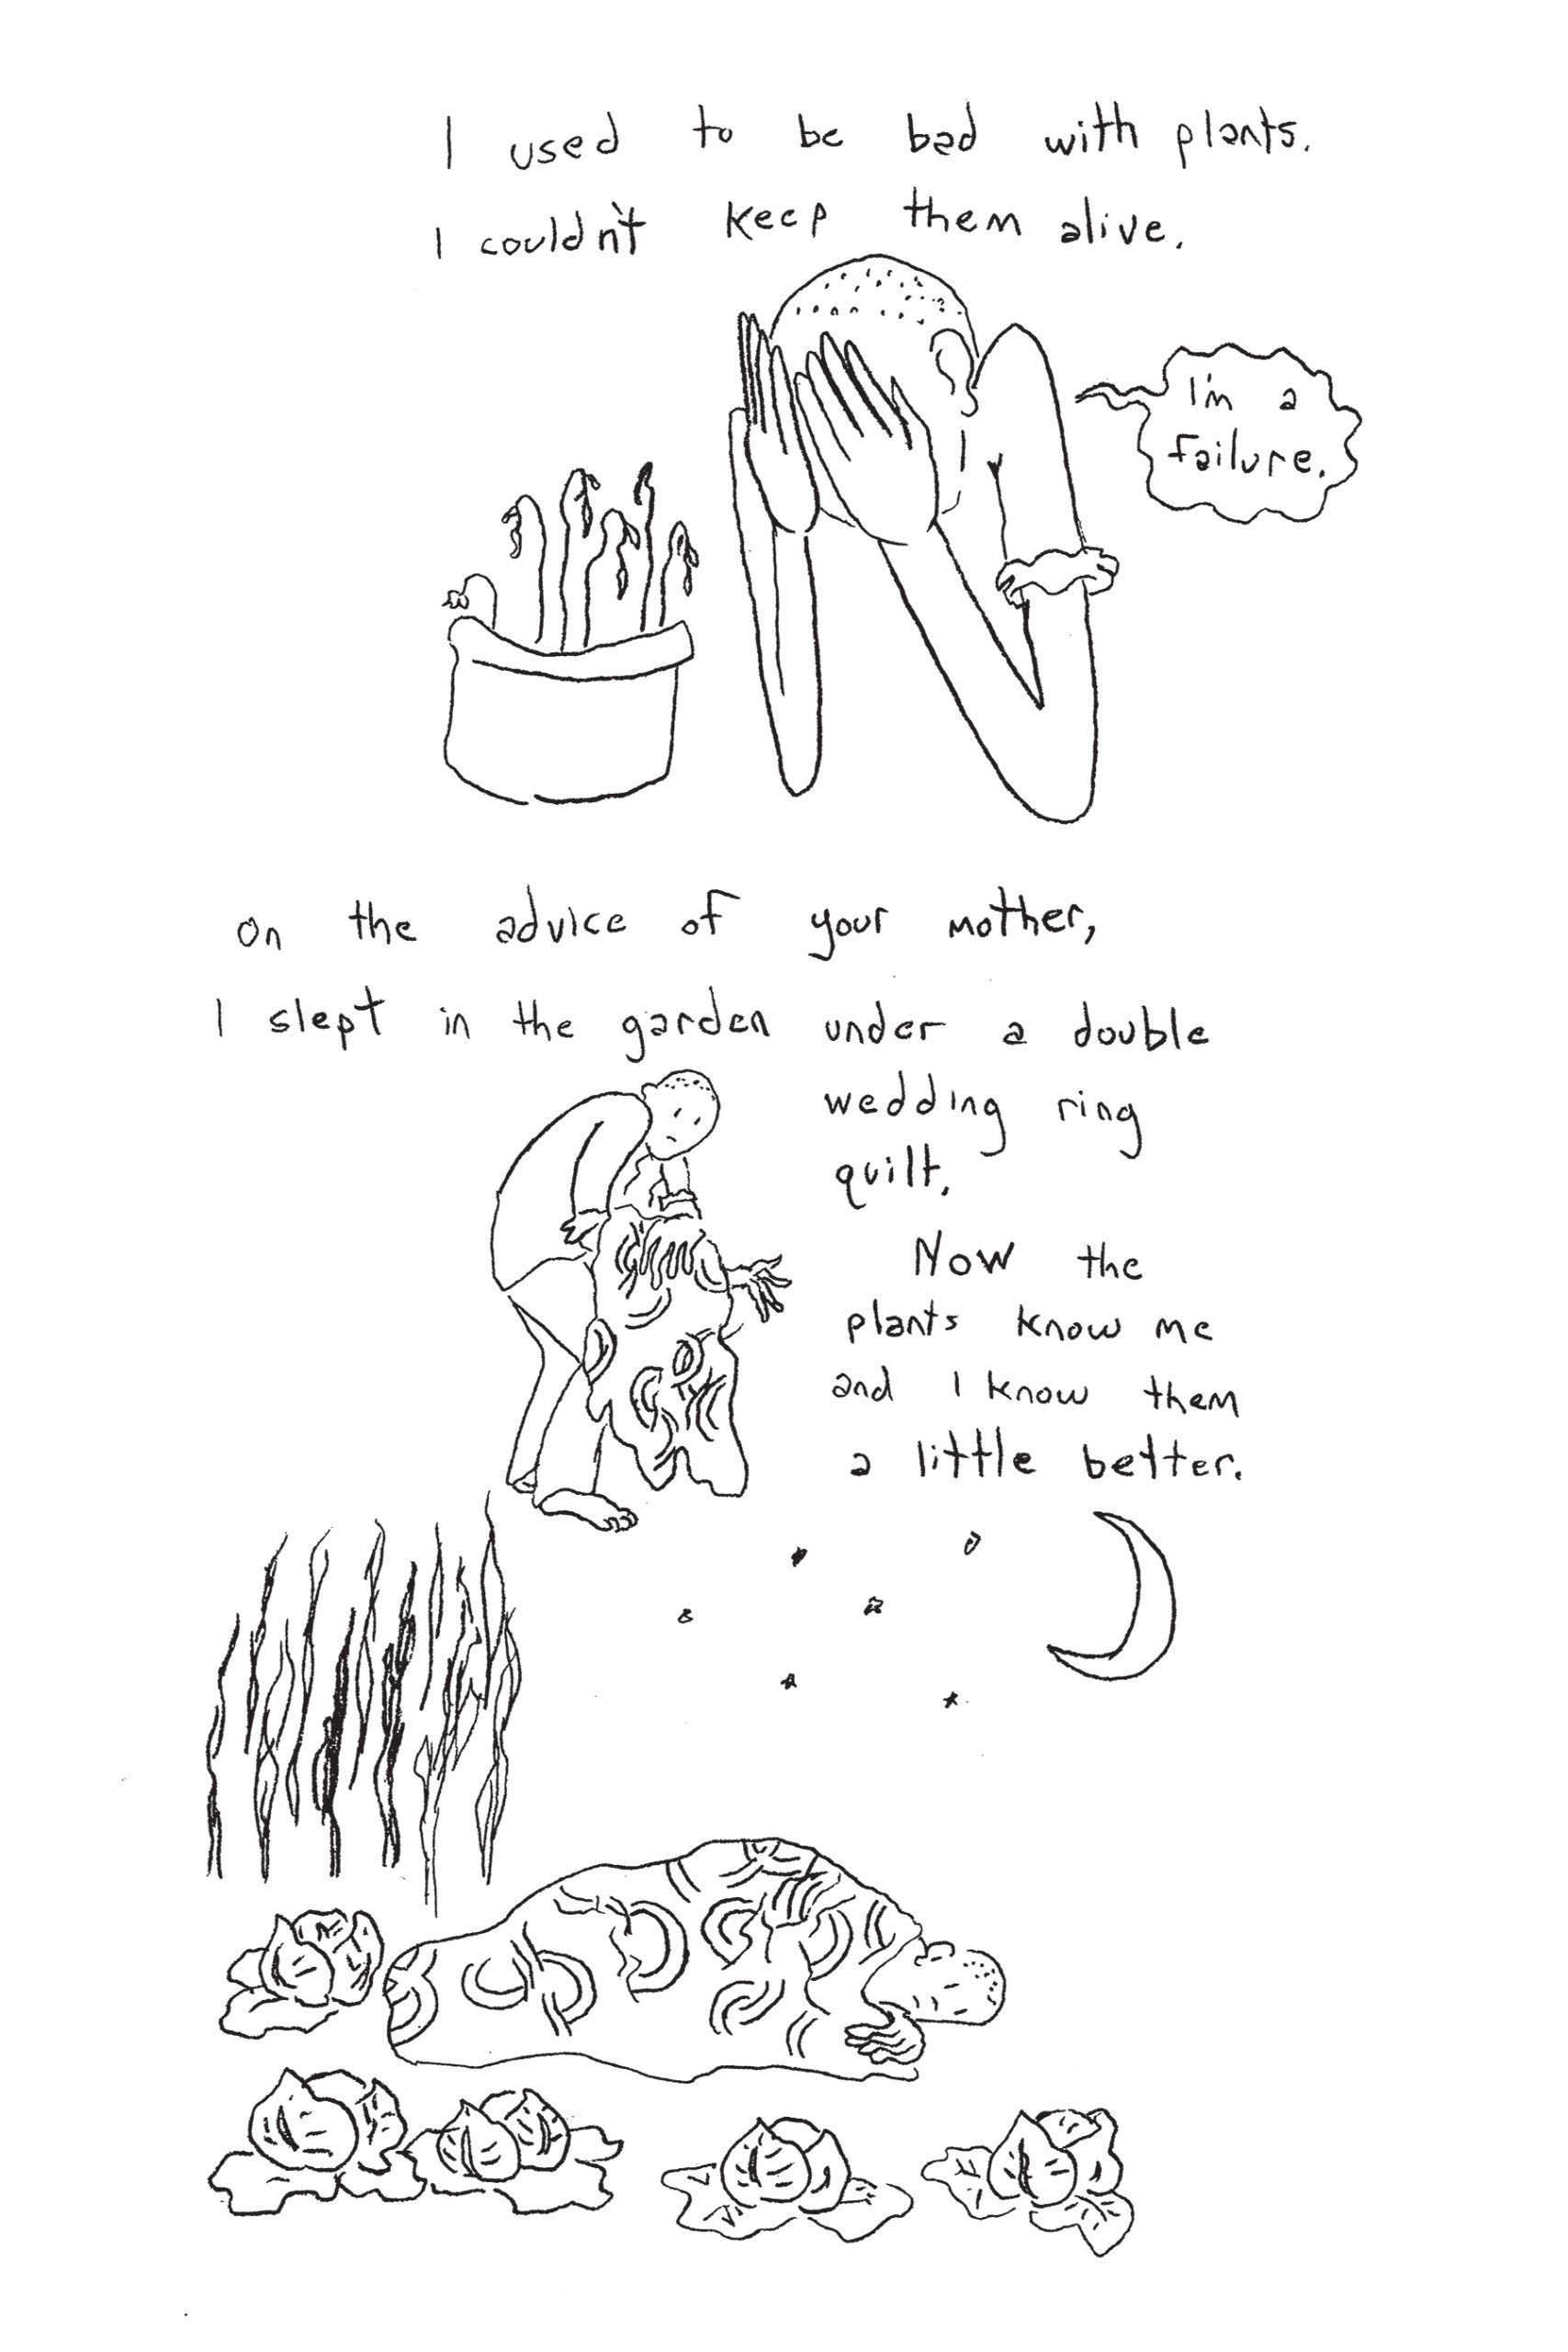 I used to be bad with plants.
I couldn't keep them alive.
I'm a
failure.
on the advice of your mother,
I slept in the garden under a double
wedding ring
quilt.
Now the
plants know me
and I know them
a little better.